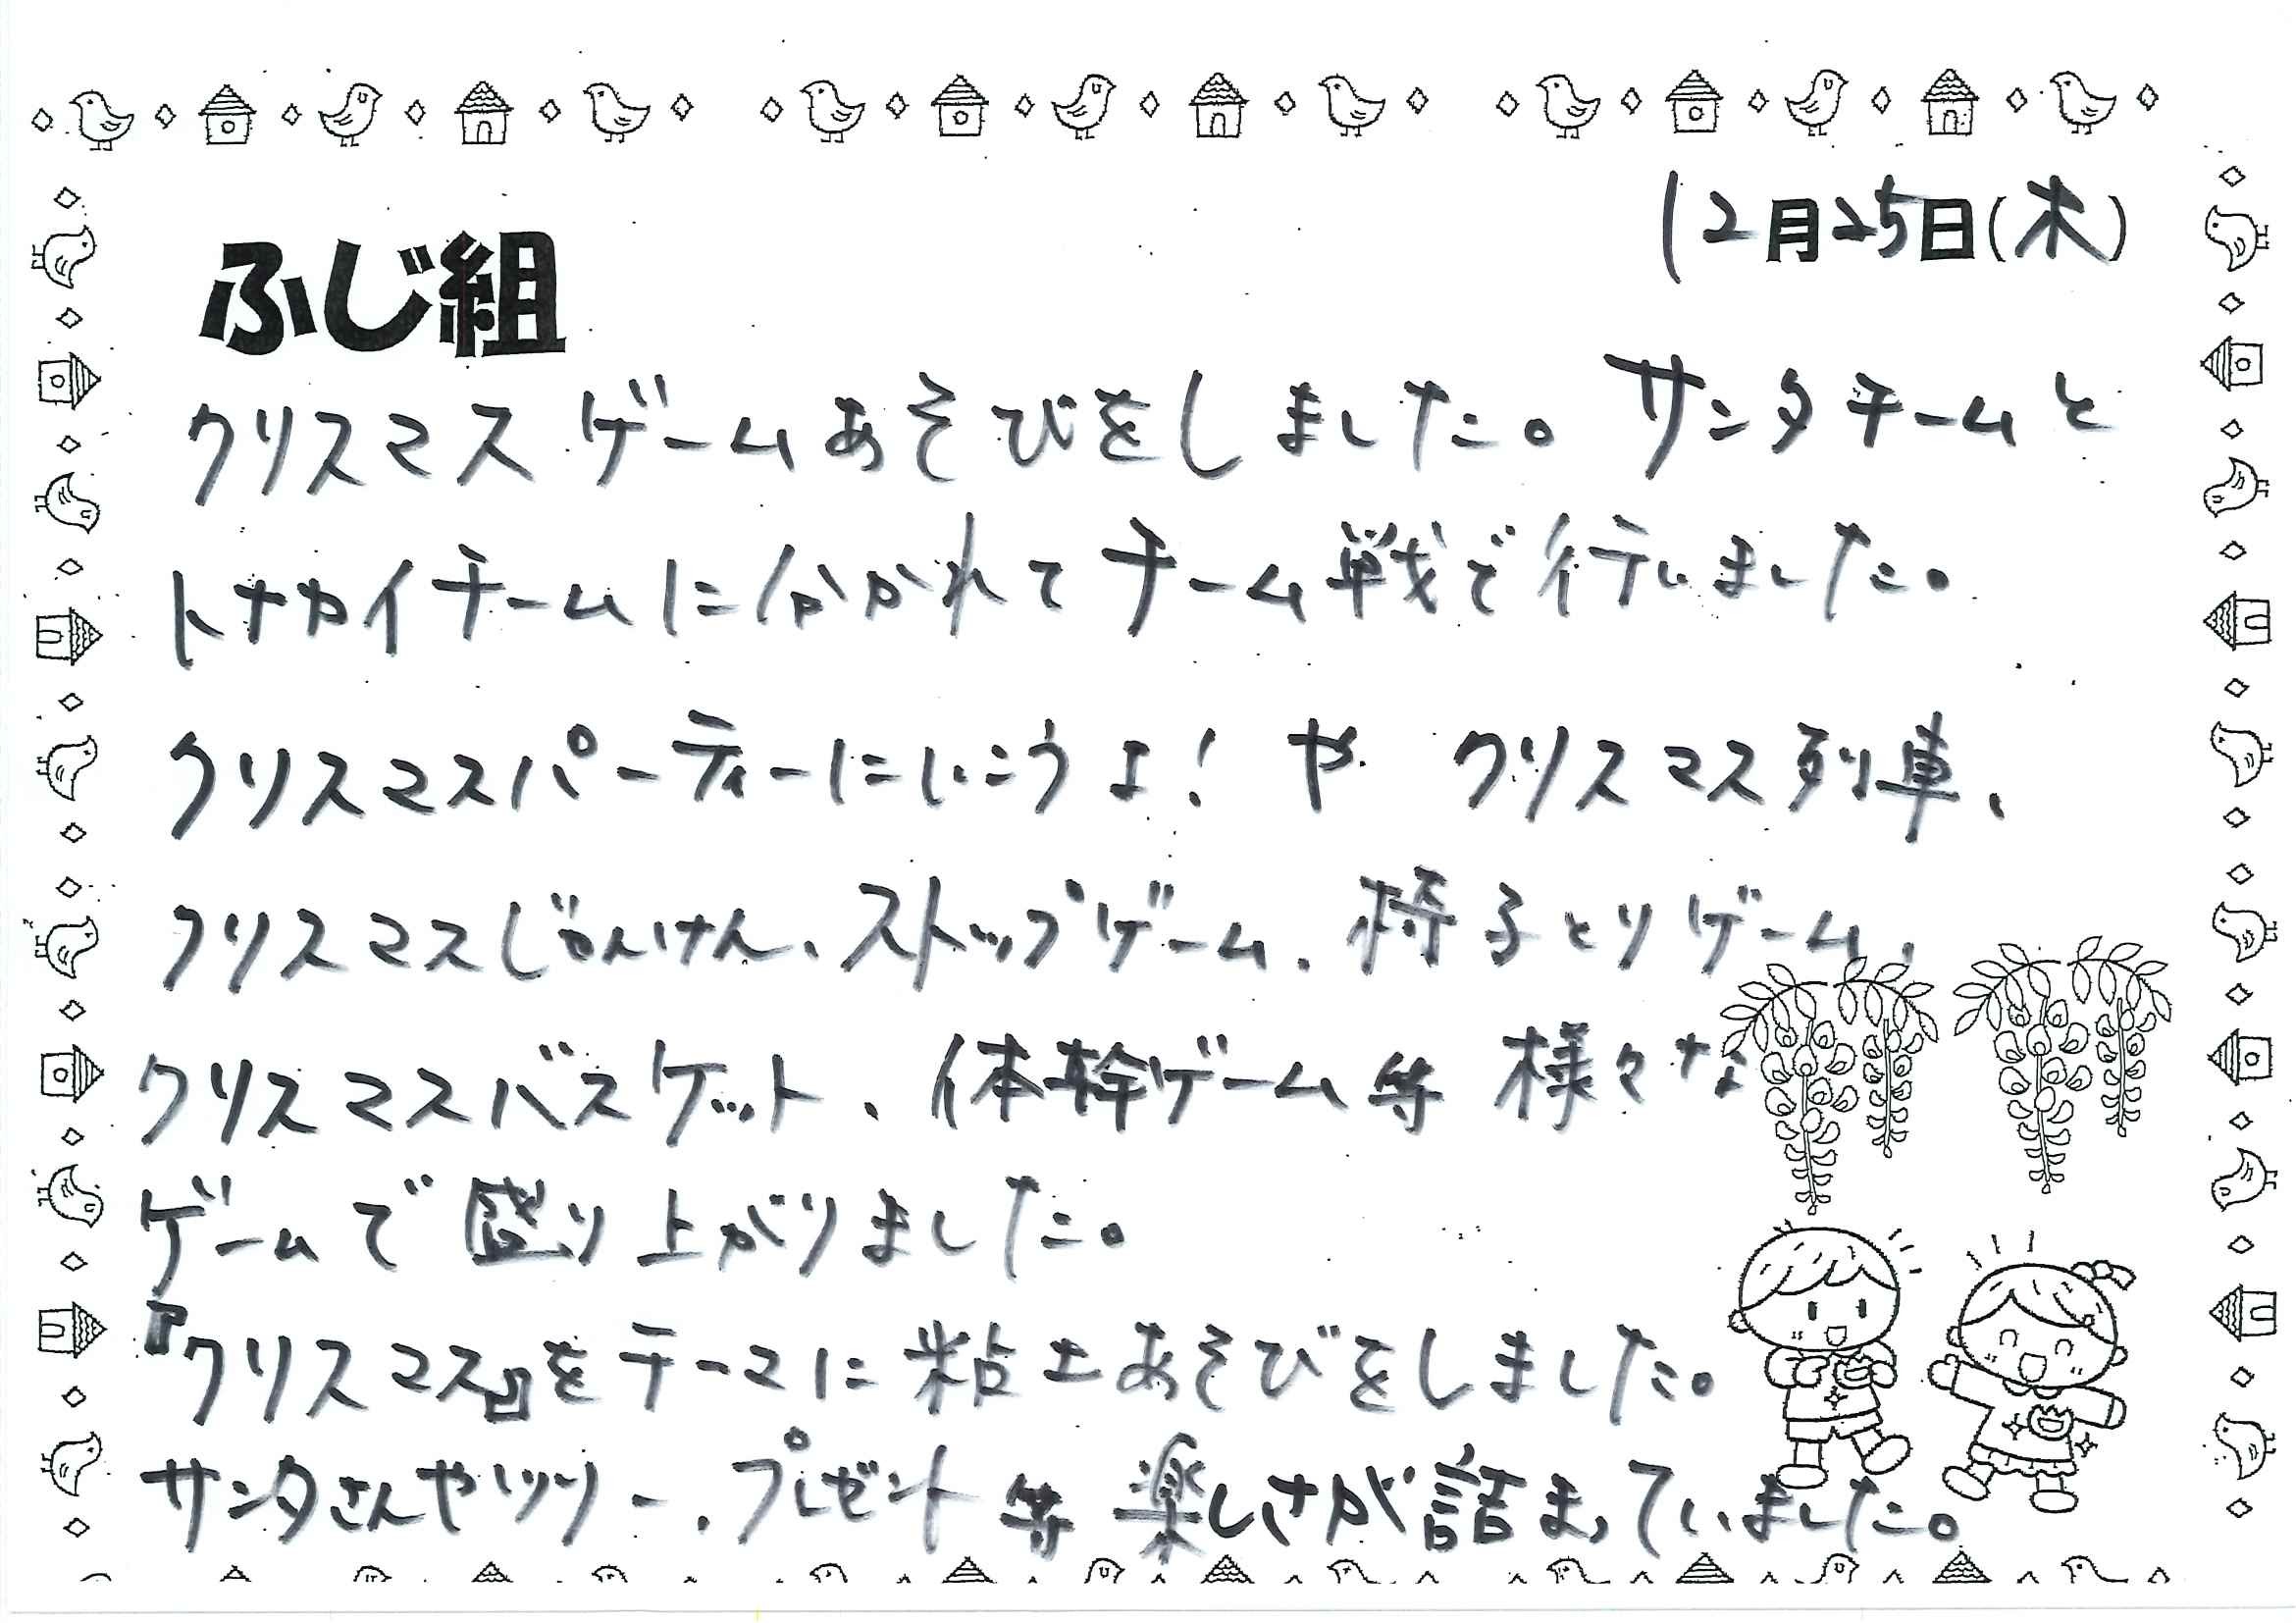 12月25日(木)
ふじ組
クリスマスゲームあそびをしました。サンタチームと
トナカイチームに分かれてチーム戦で行いました。
クリスマスパーティーにいこうよ!や クリスマス列車、
クリスマスじゃんけん、ストップゲーム、椅子とりゲーム、
クリスマスバスケット、体幹ゲーム等 様々な
ゲームで盛り上がりました。
『クリスマス』をテーマに粘土あそびをしました。
サンタさんやツリー、プレゼント等 楽しさが詰まっていました。